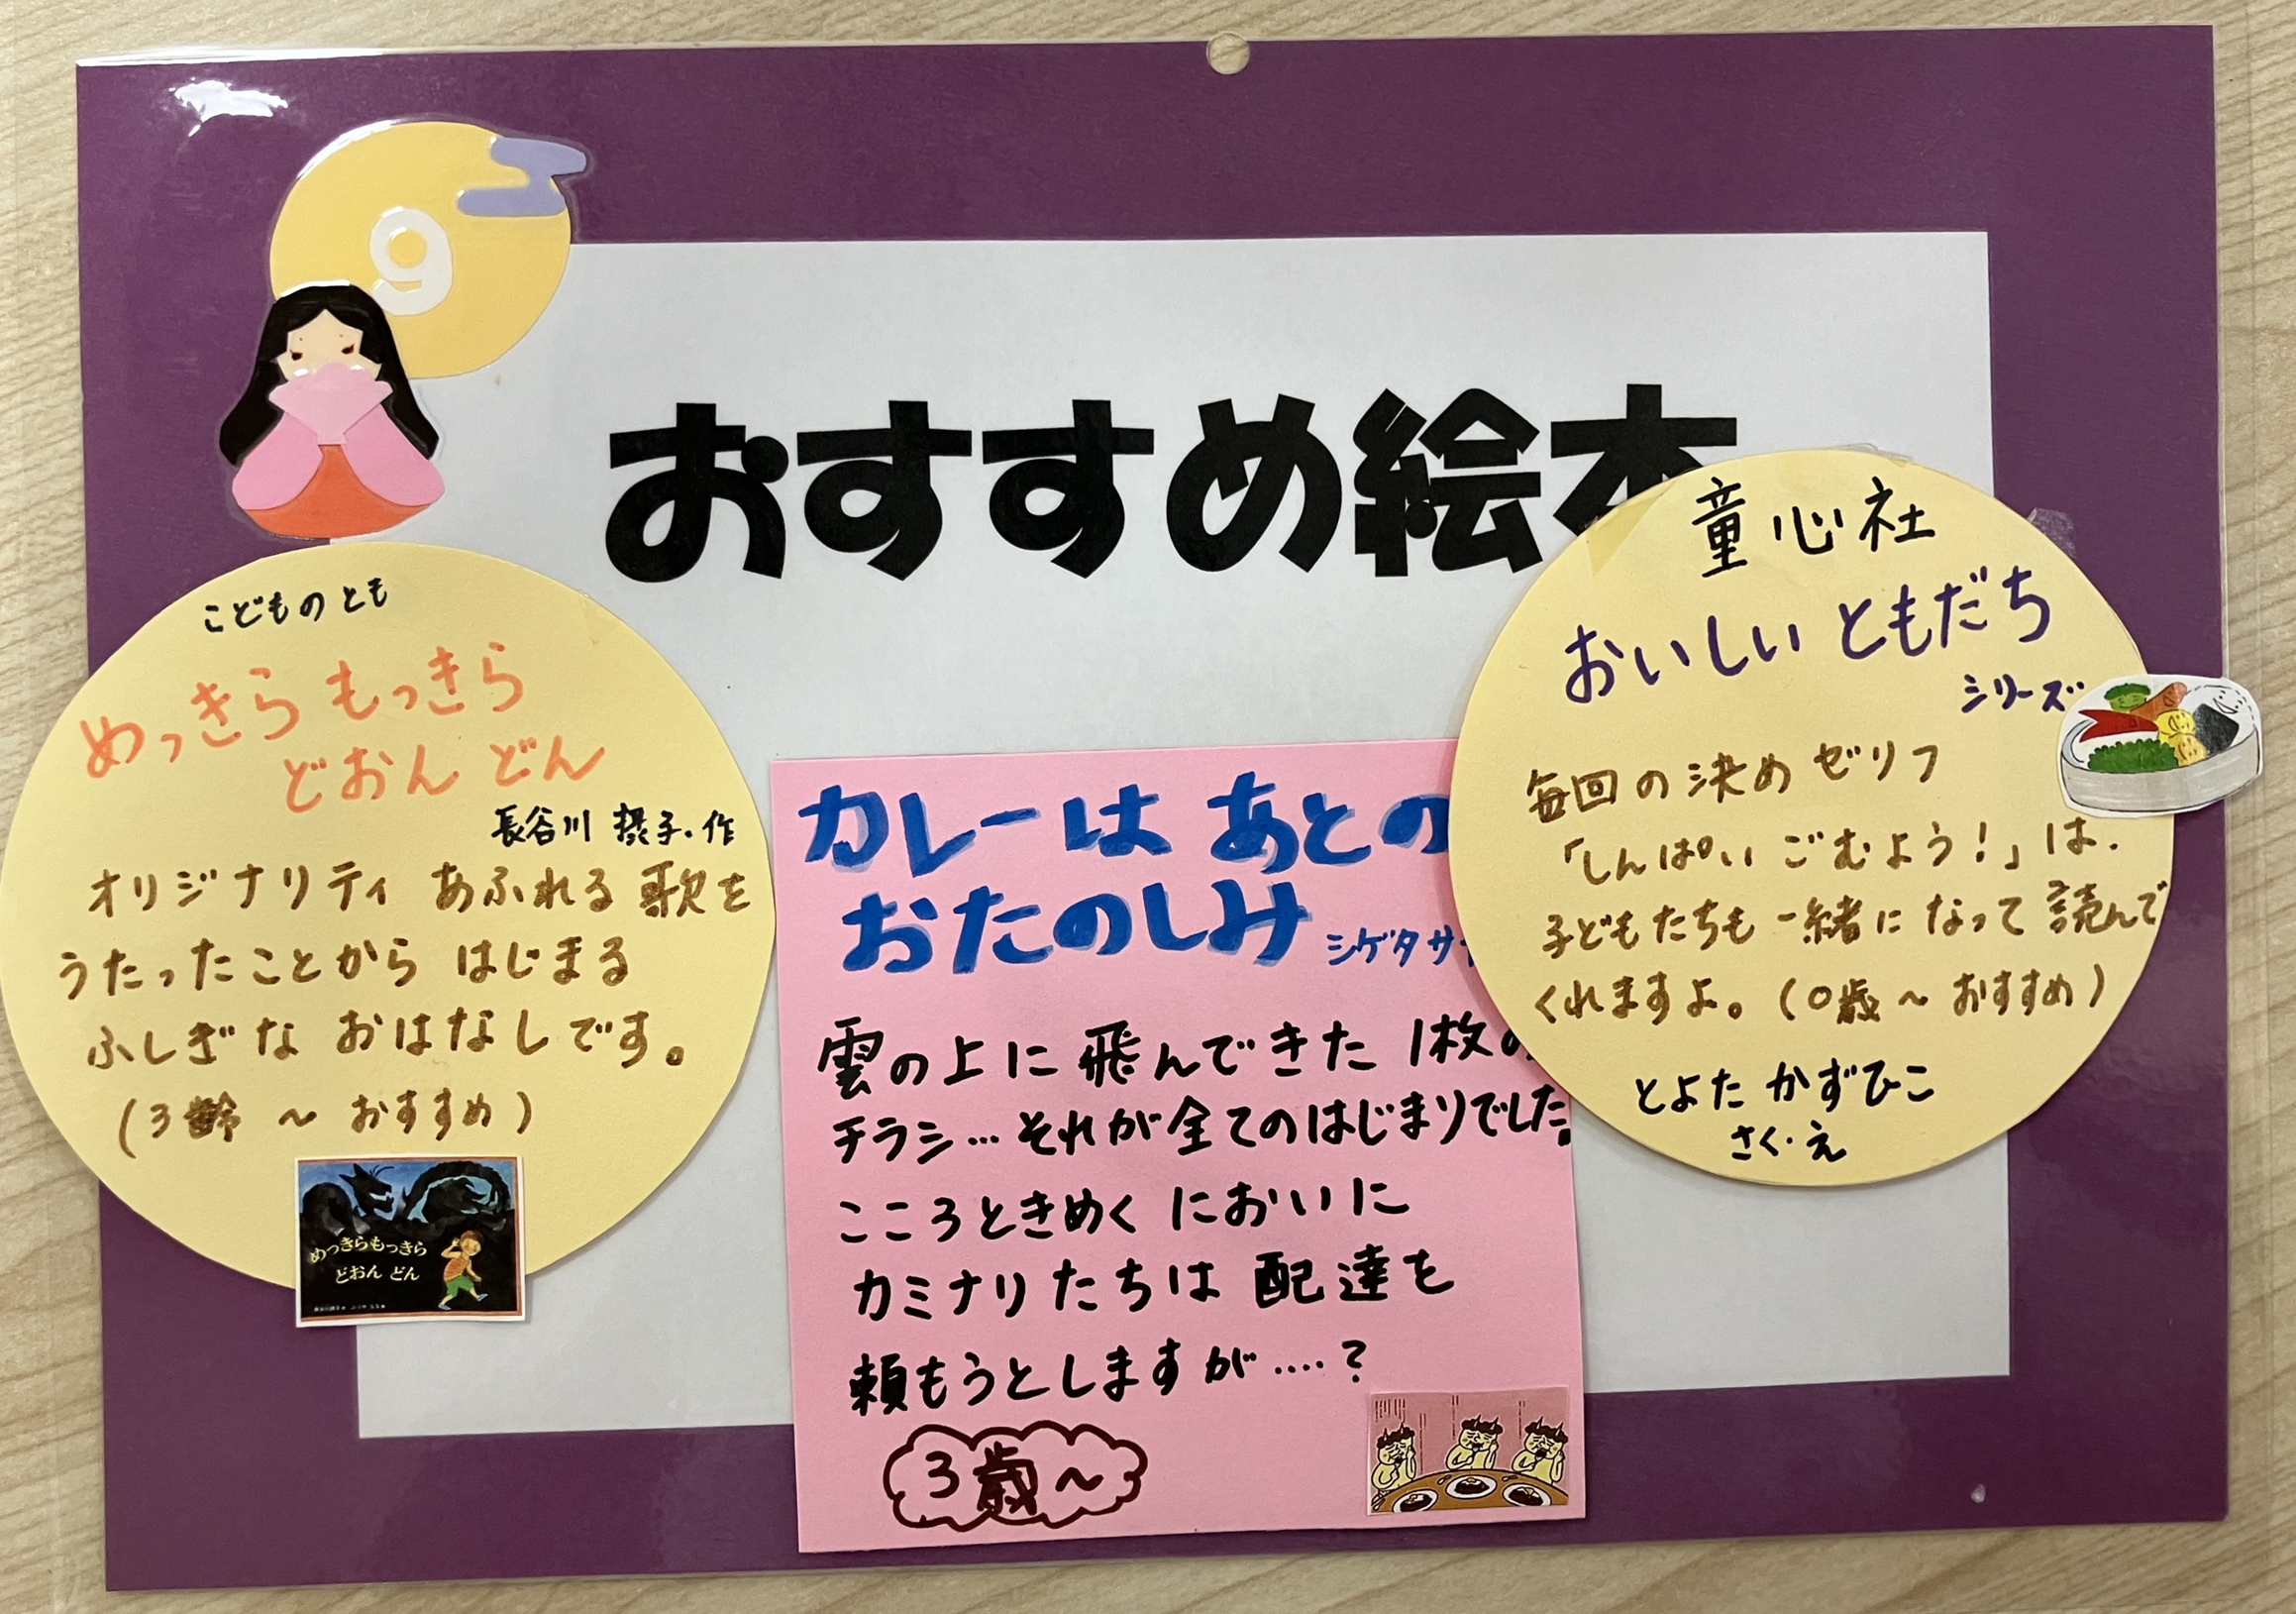 9
おすすめ絵本
こどものとも
めっきらもっきら
どおん どん
長谷川 摂子・作
オリジナリティ あふれる 歌を
うたったことから はじまる
ふしぎな おはなしです。
(3齢 〜 おすすめ)
めっきらもっきら
どおん どん
カレーは あとの
おたのしみ
シゲタサ
雲の上に 飛んできた 1枚の
チラシ…それが全てのはじまりでした。
こころときめく においに
カミナリたちは 配達を
頼もうとしますが‥‥?
3歳〜
童心社
おいしい ともだち
シリーズ
毎回の決めゼリフ
「しんぱい ごむよう!」は、
子どもたちも 一緒に なって 読んで
くれますよ。(0歳〜おすすめ)
とよた かずひこ
さく・え